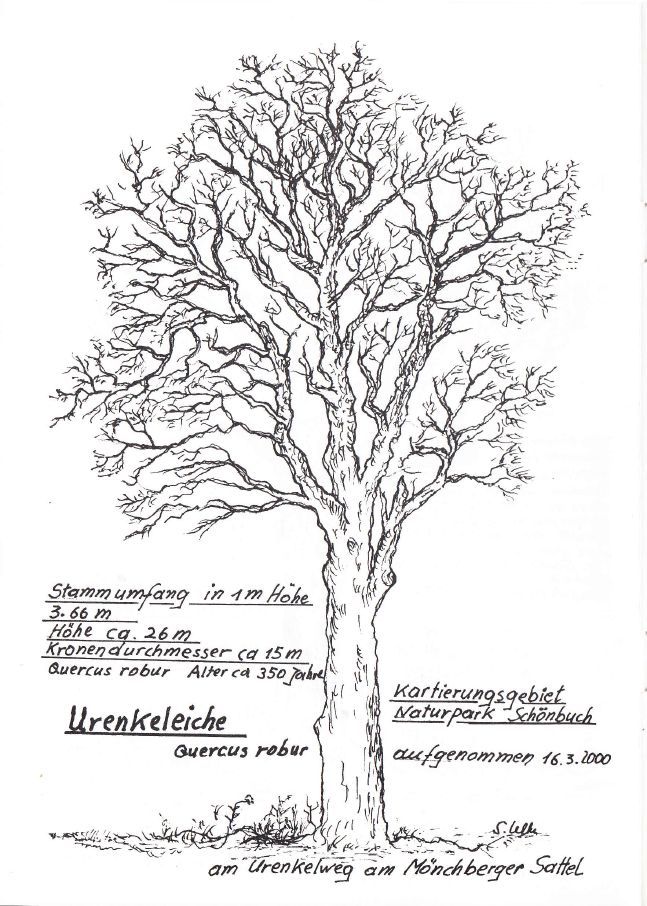 Stammumfang in 1m Höhe
3.66 m
Höhe ca. 26 m
Kronendurchmesser ca 15 m
Quercus robur Alter ca 350 Jahre
Urenkeleiche
Quercus robur
Kartierungsgebiet
Naturpark Schönbuch
aufgenommen 16.3.2000
am Urenkelweg am Mönchberger Sattel